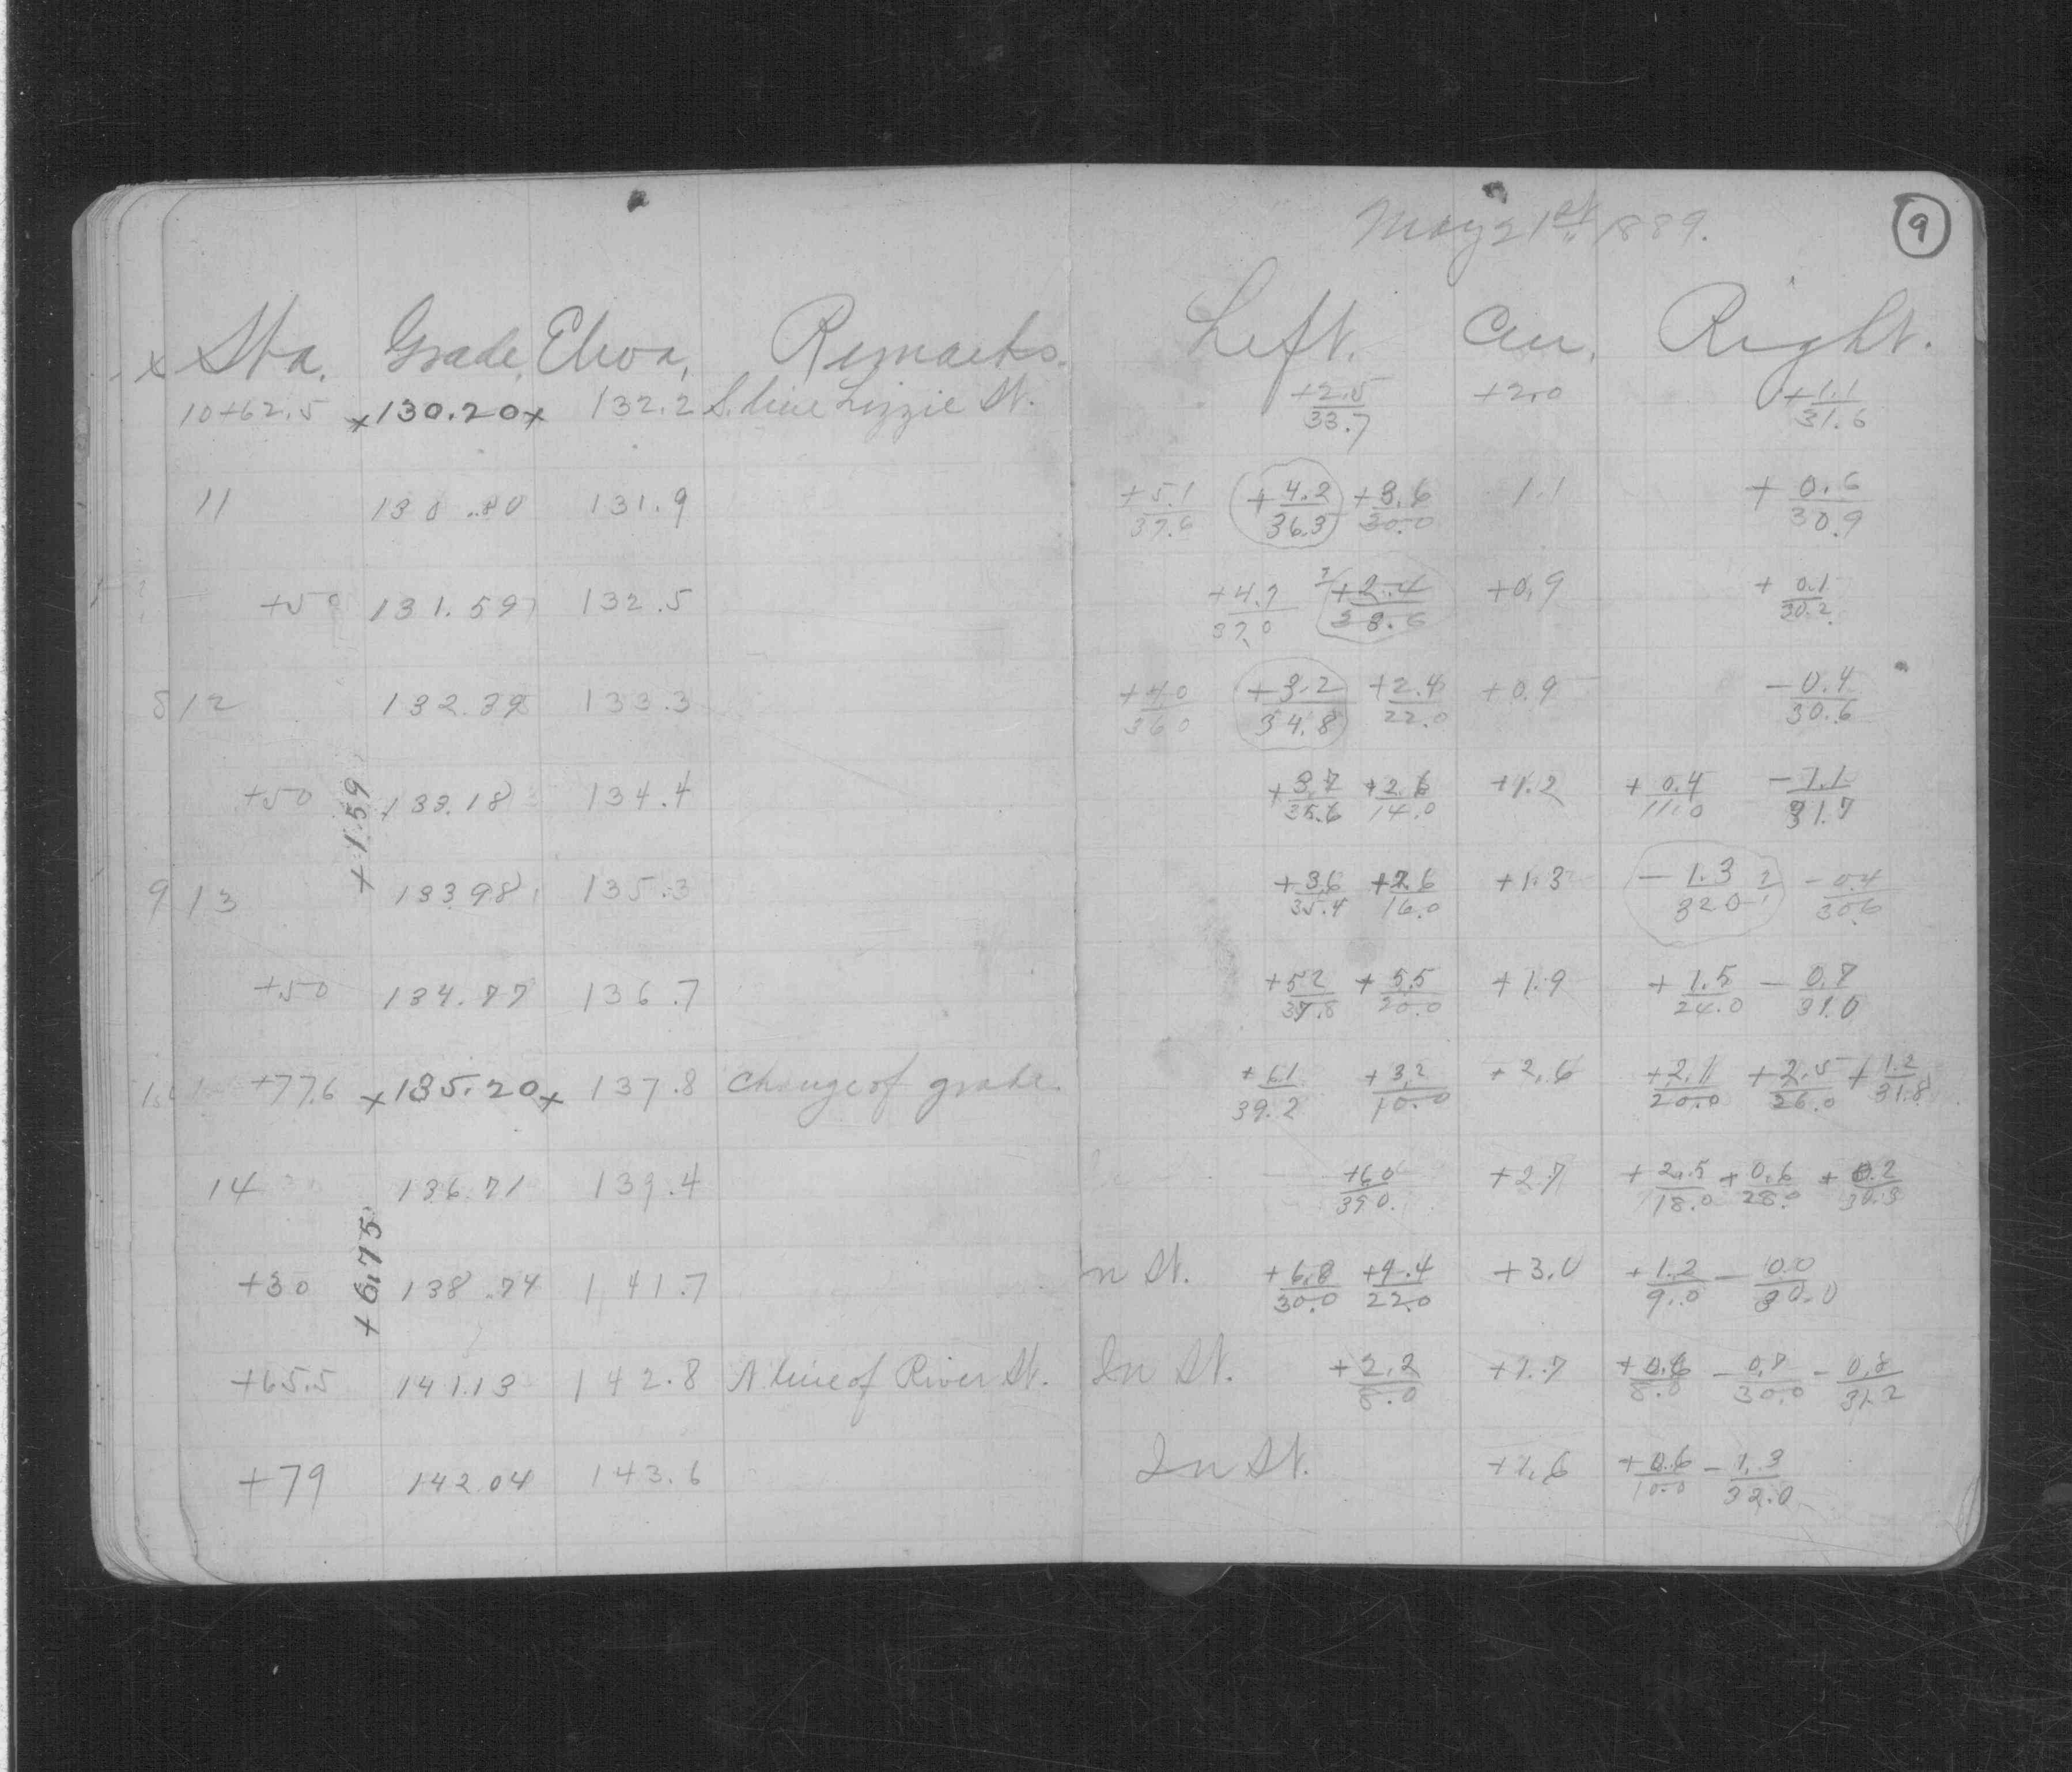 May 21st 1889. 9
x Sta. Grade. Eleva. Remarks. Left. Cen. Right.
10+62.5 x130.20x 132.2 S. line Lizzie St. +2.5/33.7 +2.0 +1.1/31.6
11 130.80 131.9 +5.1/37.6 +4.2/36.3 +3.6/30.0 1.1 +0.6/30.9
+50 131.59 132.5 +4.7/37.0 ?/+2.4/33.6 +0.9 +0.1/30.2
12 132.39 133.3 +4.0/36.0 +3.2/34.8 +2.4/22.0 +0.9 -0.4/30.6
+50 133.18 134.4 +3.7/35.6 +2.6/14.0 +1.2 +0.4/11.0 -1.1/31.7
+1.59
9 13 133.98 135.3 +3.6/35.4 +2.6/16.0 +1.3 -1.3/32.0 ? -0.4/30.6
+50 134.77 136.7 +5.2/37.8 +5.5/20.0 +1.9 +1.5/24.0 -0.7/31.0
+77.6 x135.20x 137.8 Change of grade. +6.1/39.2 +3.2/10.0 +2.6 +2.1/20.0 +2.5/26.0 +1.2/31.8
14 136.71 139.4 +6.0/39.0 +2.7 +2.5/18.0 +0.6/28.0 +0.2/30.3
+6.75
+30 138.74 141.7 In St. +6.8/30.0 +9.4/22.0 +3.0 +1.2/9.0 -0.0/30.0
+65.5 141.13 142.8 N. line of River St. In St. +2.2/8.0 +1.7 +0.6/8.0 -0.7/30.0 -0.8/31.2
+79 142.04 143.6 In St. +1.6 +0.6/10.0 -1.3/32.0